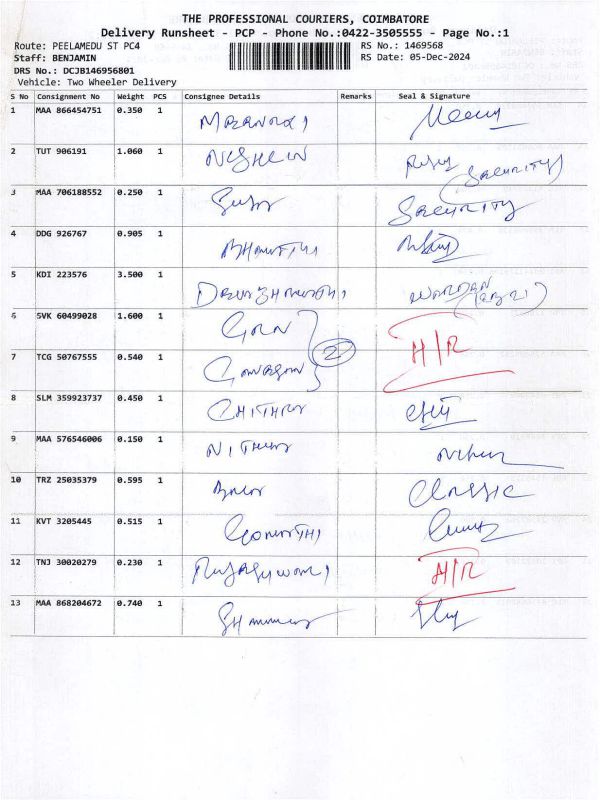 THE PROFESSIONAL COURIERS, COIMBATORE
Delivery Runsheet - PCP - Phone No.:0422-3505555 - Page No.:1
Route: PEELAMEDU ST PC4 RS No.: 1469568
Staff: BENJAMIN RS Date: 05-Dec-2024
DRS No.: DCJB146956801
Vehicle: Two Wheeler Delivery
S No Consignment No Weight PCS Consignee Details Remarks Seal & Signature
1 MAA 866454751 0.350 1
2 TUT 906191 1.060 1 (Security)
3 MAA 706188552 0.250 1 Security
4 DDG 926767 0.905 1
5 KDI 223576 3.500 1 WARDAN
6 SVK 60499028 1.600 1 2 H/R
7 TCG 50767555 0.540 1
8 SLM 359923737 0.450 1 CHITHRA
9 MAA 576546006 0.150 1
10 TRZ 25035379 0.595 1 Classic
11 KVT 3205445 0.515 1 Gomathi
12 TNJ 30020279 0.230 1 H/R
13 MAA 868204672 0.740 1